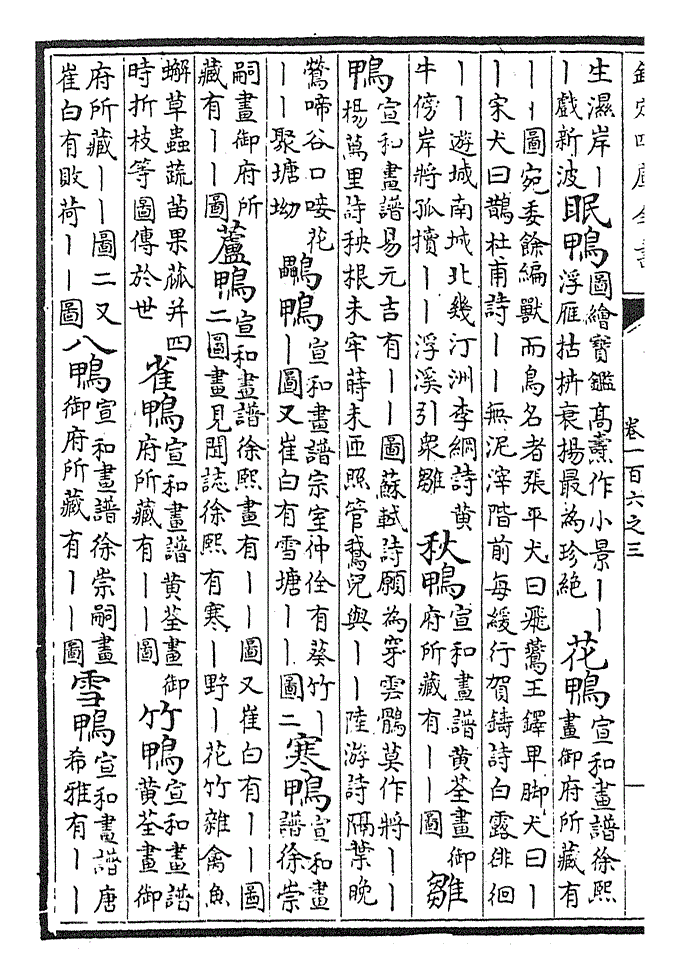 欽定四庫全書
卷一百六之三
生濕岸丨丨戲新波眠鴨圖繪寶鑑高燾作小景丨丨浮雁拈枿衰揚最為珍絶花鴨宣和畫譜徐熙畫御府所藏有
丨丨圖宛委餘編獸而鳥名者張平犬曰飛鶯王鐸早脚犬曰丨丨宋犬曰鵲杜甫詩丨丨無泥滓階前每緩行賀鑄詩白露徘徊
丨丨遊城南城北幾汀洲李綱詩黃牛傍岸將孤犢丨丨浮溪引衆雛秋鴨宣和畫譜黃荃畫御府所藏有丨丨圖雛
鴨宣和畫譜易元吉有丨丨圖蘇軾詩願為穿雲鶻莫作將丨丨楊萬里詩秧根未牢蒔未匝照管鵞兒與丨丨陸游詩隔葉晚
鶯啼谷口唼花丨丨聚塘坳鸓鴨宣和畫譜宗室仲佺有葵竹丨丨圖又崔白有雪塘丨丨圖二寒鴨宣和畫譜徐崇
嗣畫御府所藏有丨丨圖蘆鴨宣和畫譜徐熙畫有丨丨圖又崔白有丨丨圖二圖畫見聞誌徐熙有寒丨野丨花竹雜禽魚
蠏草蟲蔬苗果蓏并四時折枝等圖傳於世雀鴨宣和畫譜黃荃畫御府所藏有丨丨圖竹鴨宣和畫譜黃荃畫御
府所藏丨丨圖二又崔白有敗荷丨丨圖八鴨宣和畫譜徐崇嗣畫御府所藏有丨丨圖雪鴨宣和畫譜唐希雅有丨丨